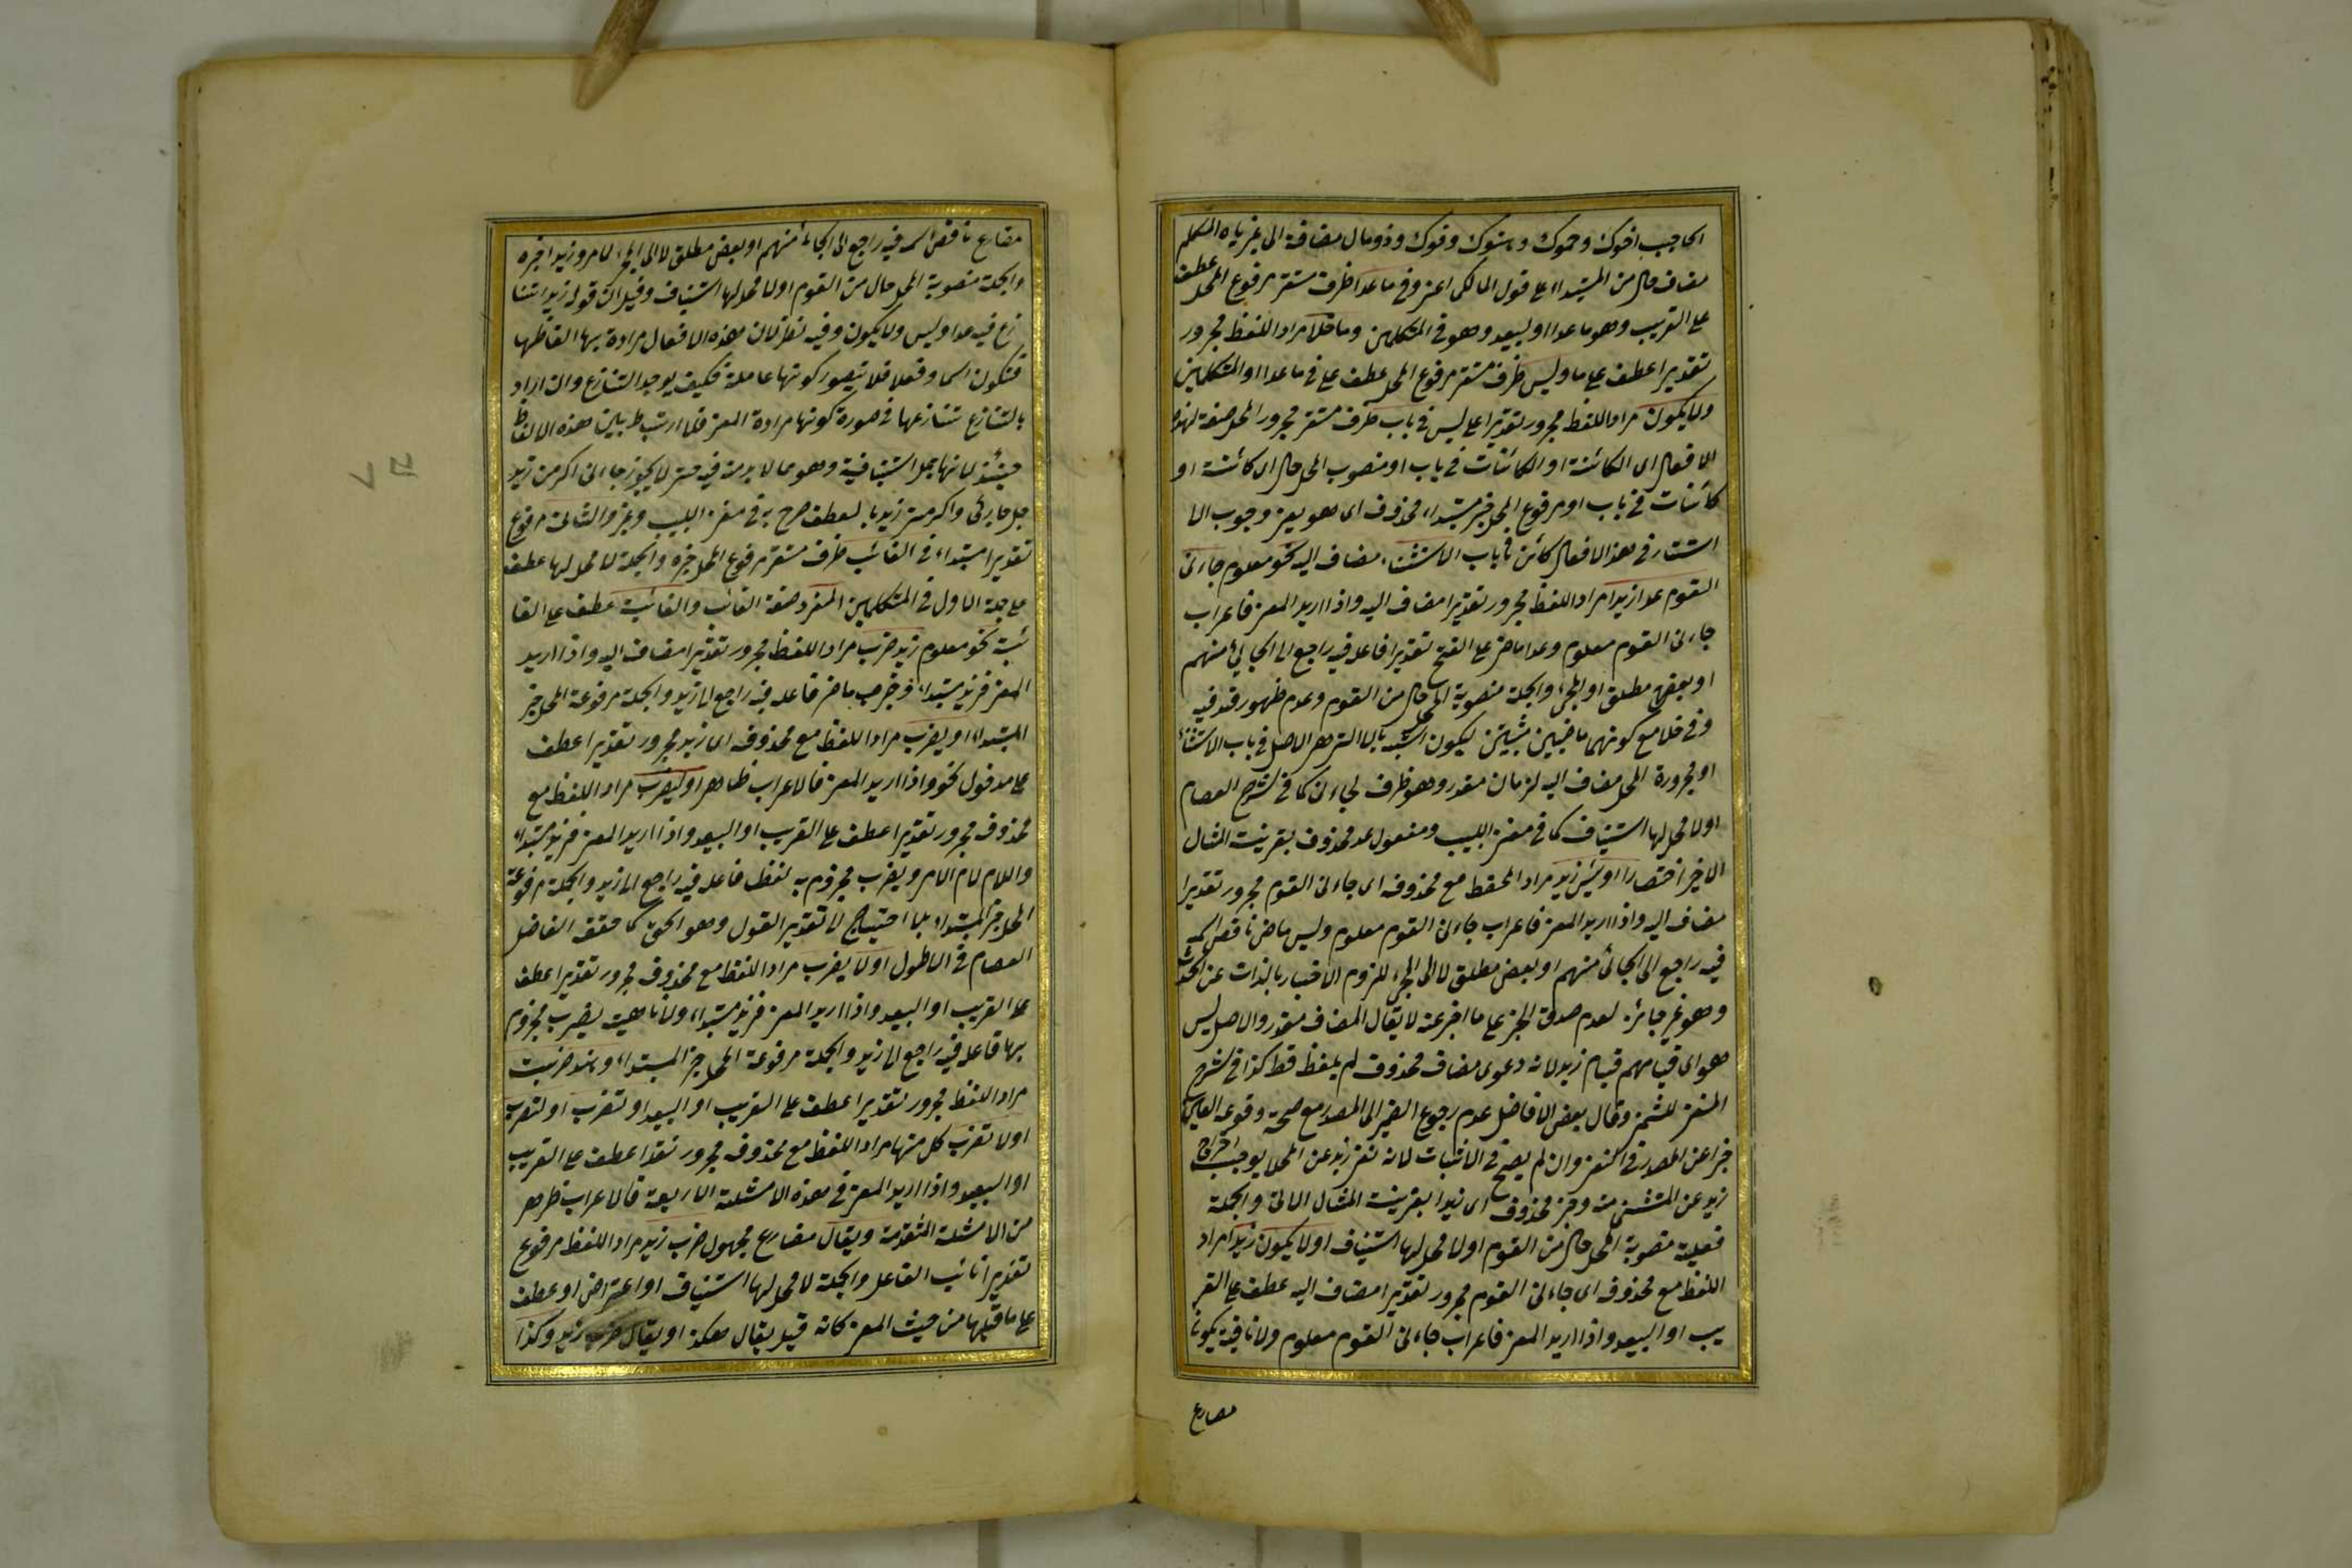 الحاجب اخوك وحموك وهنوك وفوك وذو مال مضافة الى غير ياء المتكلم
مضاف حال من المبتداء على قول المالكى اعنى وفى ماعدا ظرف مستقر مرفوع المحل عطف
على القريب وهو ماعدا او البعيد وهو فى المتكلمين وما خلا مراد اللفظ مجرور
تقديرا عطف على ما وليس ظرف مستقر مرفوع المحل عطف على فى ماعدا او المتكلمين
ولا يكون مراد اللفظ مجرور تقديرا على ليس فى باب ظرف مستقر مجرور المحل صفة لهذه
الافعال اى الكائنة او الكائنات فى باب او منصوب المحل حال اى كائنة او
كائنات فى باب او مرفوع المحل خبر مبتداء محذوف اى هو يعنى وجوب الا
استتار فى هذا الافعال كائن فى باب الاستثناء مضاف اليه نحو معلوم جاءنى
القوم عدا زيدا مراد اللفظ مجرور تقديرا مضاف اليه واذا اريد المعنى فاعراب
جاءنى القوم معلوم وعدا ماض على الفتح تقديرا فاعله فيه راجع الى الجائى منهم
او بعضهم مطلق او المجئ والجملة منصوبة المحل حال من القوم وعدم ظهور قد فيه
وفى خلا مع كونهما ماضيين مثبتين ليكون اشبه بالا التى هى الاصل فى باب الاستثناء
او مجرورة المحل مضاف اليه لزمان مقدر وهو ظرف لجاءنى كما فى شرح العصام
او لا محل لها استيناف كما فى مغنى اللبيب ومفعول عدا محذوف بقرينة المثال
الاخير اختصارا او ليس زيد مراد اللفظ مع محذوفه اى جاءنى القوم مجرور تقديرا
مضاف اليه واذا اريد المعنى فاعراب جاءنى القوم معلوم وليس ماض ناقص اسمه
فيه راجع الى الجائى منهم او بعض مطلق لا الى المجئ للزوم الاخبار بالذات عن الحدث
وهو غير جائز لعدم صدق الخبر على ما اخبر عنه لا يقال المضاف مقدر والاصل ليس
هو اى قيامهم قيام زيد لانه دعوى مضاف محذوف لم يلفظ قط كذا فى شرح
المغنى للشمنى وقال بعض الافاضل عدم رجوع الضمير الى المصدر مع صحة وقوعه
خبرا عن المصدر فى النفى وان لم يصح فى الاثبات لانه نفى زيد عن المحل يوجب اخراج
زيد عن المستثنى منه وخبره محذوف اى زيدا بقرينة المثال الاتى والجملة
فعلية منصوبة المحل حال من القوم او لا محل لها استيناف او لا يكون زيدا مراد
اللفظ مع محذوفه اى جاءنى القوم مجرور تقديرا مضاف اليه عطف على القر
يب او البعيد واذا اريد المعنى فاعراب جاءنى القوم معلوم ولا نافية يكون
مضارع
مضارع ناقص اسمه فيه راجع الى الجائى منهم او بعض مطلق لا الى المجئ لما مر وزيدا خبره
والجملة منصوبة المحل حال من القوم او لا محل لها استيناف وقيل ان قوله زيدا تنا
زع فيه عدا وليس ولا يكون وفيه نظر لان هذه الافعال مرادة بها الفاظها
فتكون اسما وفعلا فلا يتصور كونها عاملة فكيف يوجد التنازع وان اراد
بالتنازع تنازعها فى صورة كونها مرادة المعنى فلا ارتباط بين هذه الالفاظ
حينئذ لانها جمل استينافية وهو مما لا بد منه فيه حتى لا يجوز جاءنى اكرمت زيد
بل جاءنى واكرمت زيد بالعطف صرح به فى مغنى اللبيب وغيره والثانى مرفوع
تقديرا مبتداء فى الغائب ظرف مستقر مرفوع المحل خبره والجملة لا محل لها عطف
على جملة الاول فى المتكلمين المفرد صفة الغائب والغائبة عطف على الغا
ئب نحو معلوم زيد ضرب مراد اللفظ مجرور تقديرا مضاف اليه واذا اريد
المعنى فزيد مبتداء وضرب ماض فاعله فيه راجع الى زيد والجملة مرفوعة المحل خبر
المبتداء او يضرب مراد اللفظ مع محذوفه اى زيد مجرور تقديرا عطف
على مدخول نحو واذا اريد المعنى فالاعراب ظاهر او ليضرب مراد اللفظ مع
محذوفه مجرور تقديرا عطف على القريب او البعيد واذا اريد المعنى فزيد مبتداء
واللام لام الامر ويضرب مجزوم به لفظا فاعله فيه راجع الى زيد والجملة مرفوعة
المحل خبر المبتداء بلا احتياج لا تقدير القول وهو الحق كما حققه الفاضل
العصام فى الاطول او لا يضرب مراد اللفظ مع محذوفه مجرور تقديرا عطف
على القريب او البعيد واذا اريد المعنى فزيد مبتداء ولا ناهية يضرب مجزوم
بها فاعله فيه راجع الى زيد والجملة مرفوعة المحل خبر المبتداء وهند ضربت
مراد اللفظ مجرور تقديرا عطف على القريب او البعيد او تضرب او لتضرب
او لا تضرب كل منها مراد اللفظ مع محذوفه مجرور تقديرا عطف على القريب
او البعيد واذا اريد المعنى فى هذه الامثلة الاربعة فالاعراب ظاهر
من الامثلة المتقدمة ويقال مضارع مجهول ضرب زيد مراد اللفظ مرفوع
تقديرا نائب الفاعل والجملة لا محل لها استيناف او اعتراض او عطف
على ما قبلها من حيث المعنى كانه قيل يقال هكذا او يقال ضرب زيد وكذا